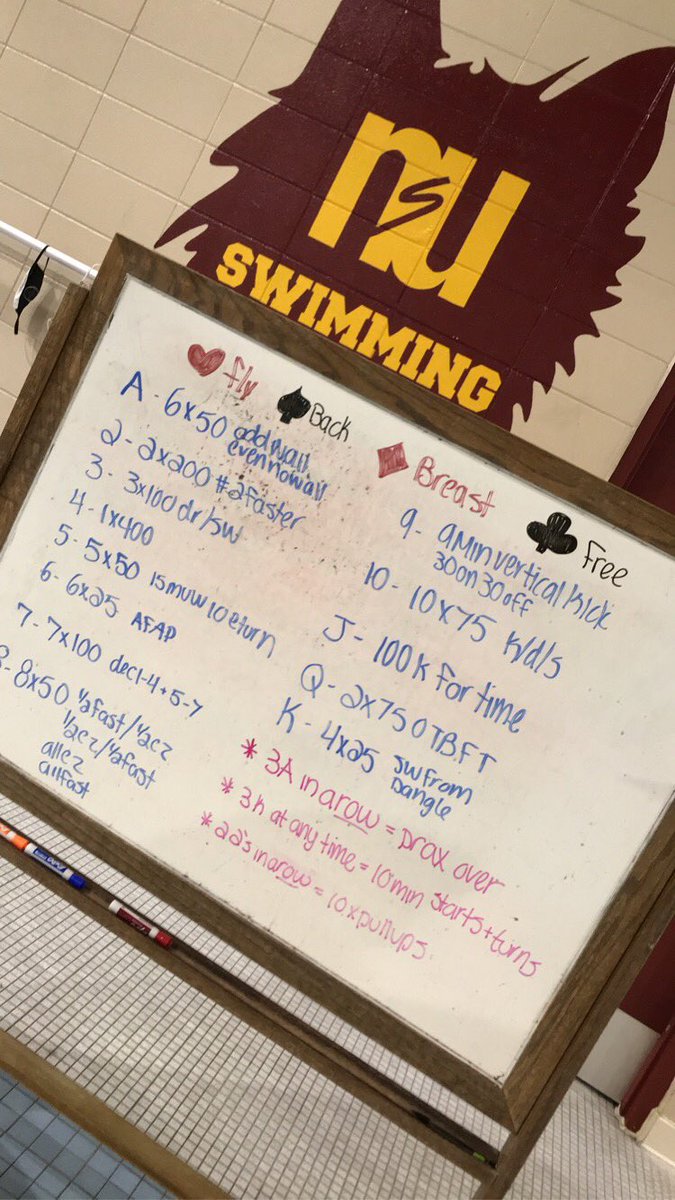 nsu
SWIMMING
fly
Back
Breast
Free
A - 6x50 odd wall
even no wall
2 - 2x200 #2 faster
3 - 3x100 dr/sw
4 - 1x400
5 - 5x50 15muw 10 eturn
6 - 6x25 AFAP
7 - 7x100 dec 1-4 + 5-7
8 - 8x50 1/2 fast/1/2 ez
1/2 ez/1/2 fast
all ez
all fast
9 - 9 Min vertical kick
30 on 30 off
10 - 10x75 K/d/s
J - 100 K for time
Q - 2x75 OTB FT
K - 4x25 SW From
Dangle
* 3A in a row = Prax over
* 3K at any time = 10 min starts + turns
* 2 2's in a row = 10x pullups.